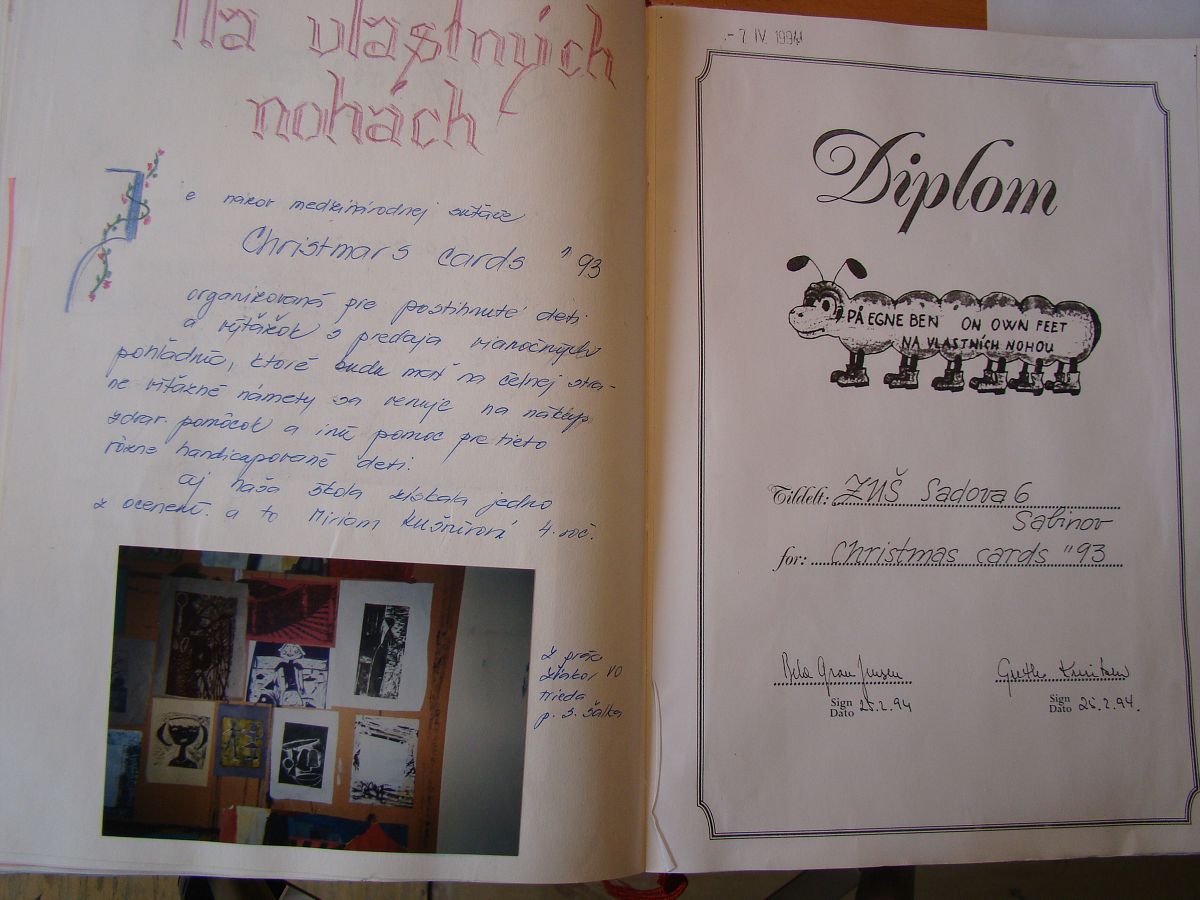 Na vlastných
nohách
Je názov medzinárodnej súťaže
Christmars cards "93
organizovaná pre postihnuté deti
a výťažok z predaja vianočných
pohľadníc, ktoré budú mať na čelnej stra-
ne víťazné námety sa venuje na nákup
zdrav. pomôcok a inú pomoc pre tieto
rôzne handicapované deti.
aj naša škola získala jedno
z ocenení. a to Miriam Kušnírová 4. roč.
z prác
žiakov VO
trieda
p. S. Šalka
- 7 IV. 1994
Diplom
PÅ EGNE BEN ON OWN FEET
NA VLASTNÍCH NOHOU
Tildelt: ZUŠ Sadova 6
Sabinov
for: Christmas cards "93
Sign
Dato 25.2.94
Sign
Dato 25.2.94.